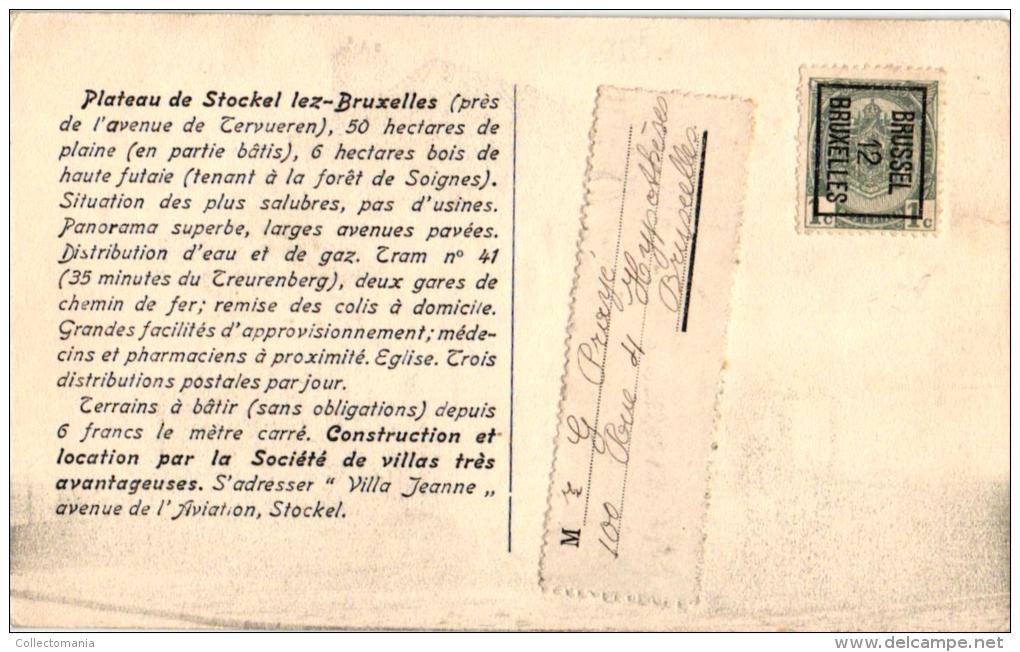 Plateau de Stockel lez-Bruxelles (près
de l'avenue de Tervueren), 50 hectares de
plaine (en partie bâtis), 6 hectares bois de
haute futaie (tenant à la forêt de Soignes).
Situation des plus salubres, pas d'usines.
Panorama superbe, larges avenues pavées.
Distribution d'eau et de gaz. Tram nº 41
(35 minutes du Treurenberg), deux gares de
chemin de fer; remise des colis à domicile.
Grandes facilités d'approvisionnement; méde-
cins et pharmaciens à proximité. Eglise. Trois
distributions postales par jour.
Terrains à bâtir (sans obligations) depuis
6 francs le mètre carré. Construction et
location par la Société de villas très
avantageuses. S'adresser " Villa Jeanne „
avenue de l'Aviation, Stockel.
M r G
100 Rue d'Hypothèses
Bruxelles
BRUSSEL
12
BRUXELLES
1c
Collectomania
www.delcampe.net